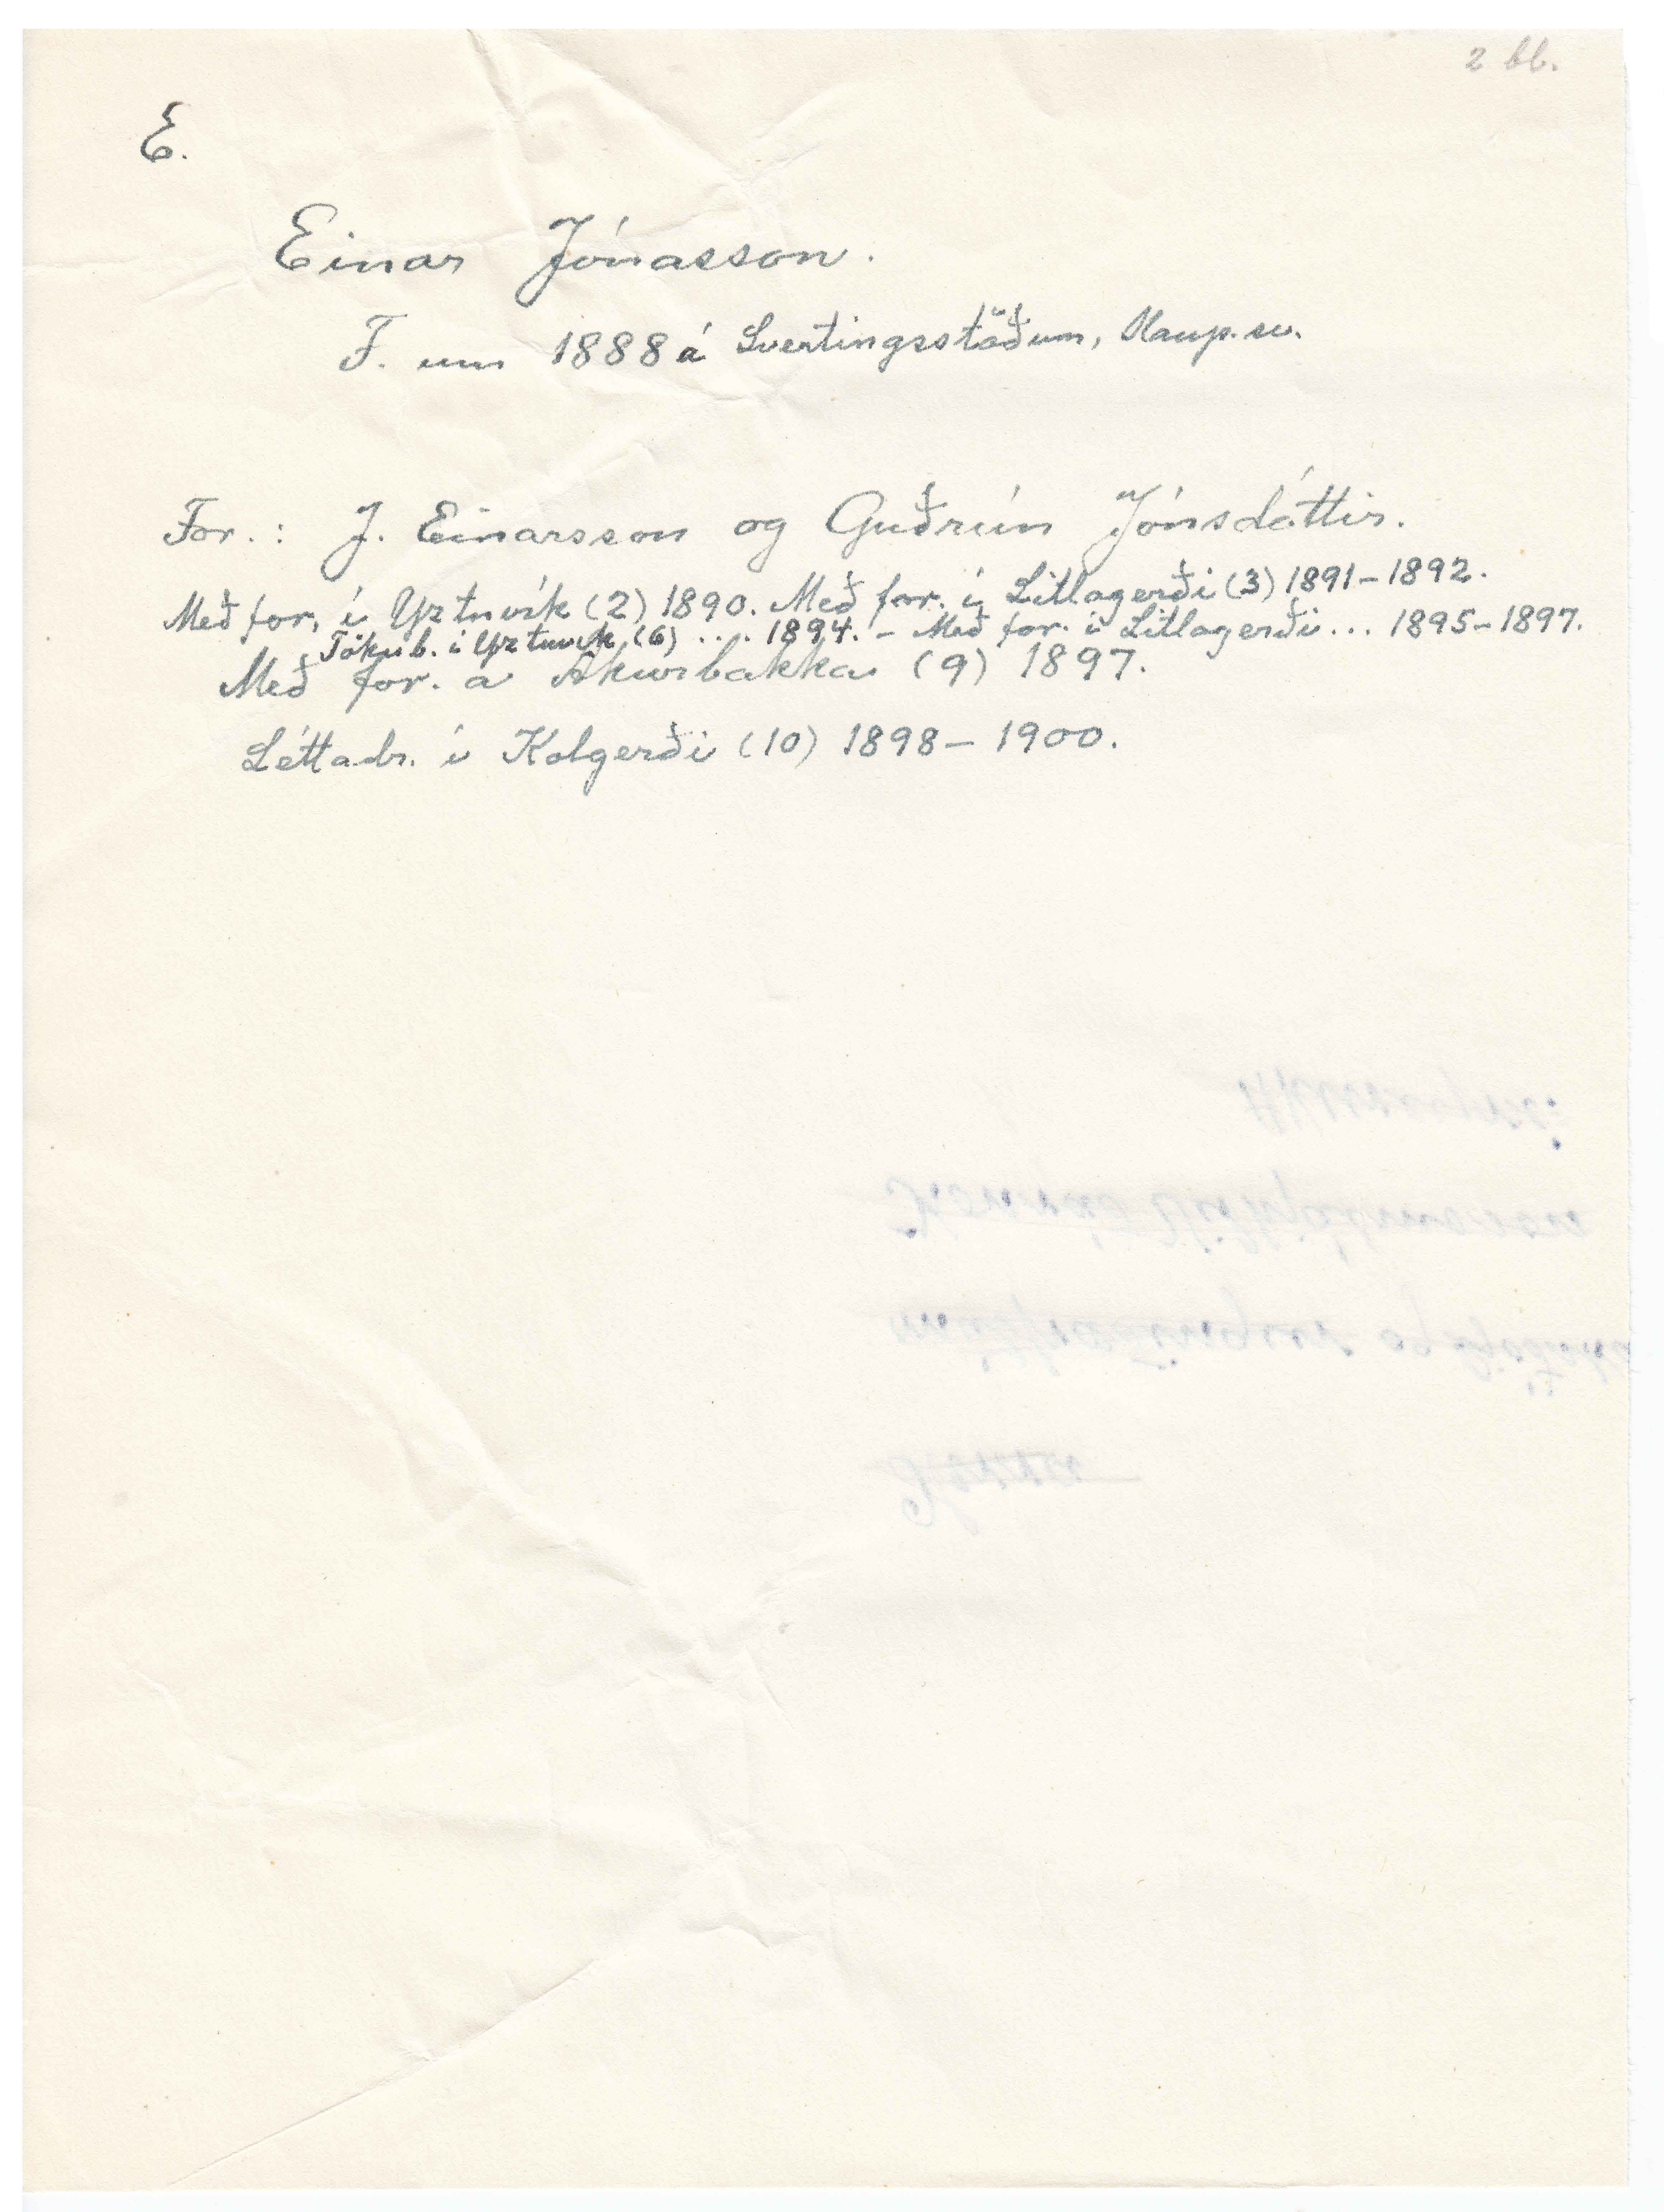 2 bb.
E.
Einar Jónasson.
F. um 1888 á Svertingsstöðum, Kaup.sv.
For.: J. Einarsson og Guðrún Jónsdóttir.
Með for. í Yztuvík (2) 1890. Með for. í Litlagerði (3) 1891-1892.
Tökub. í Yztuvík (6) .... 1894. - Með for. í Litlagerði... 1895-1897.
Með for. á Akurbakka (9) 1897.
Léttadr. í Kolgerði (10) 1898- 1900.